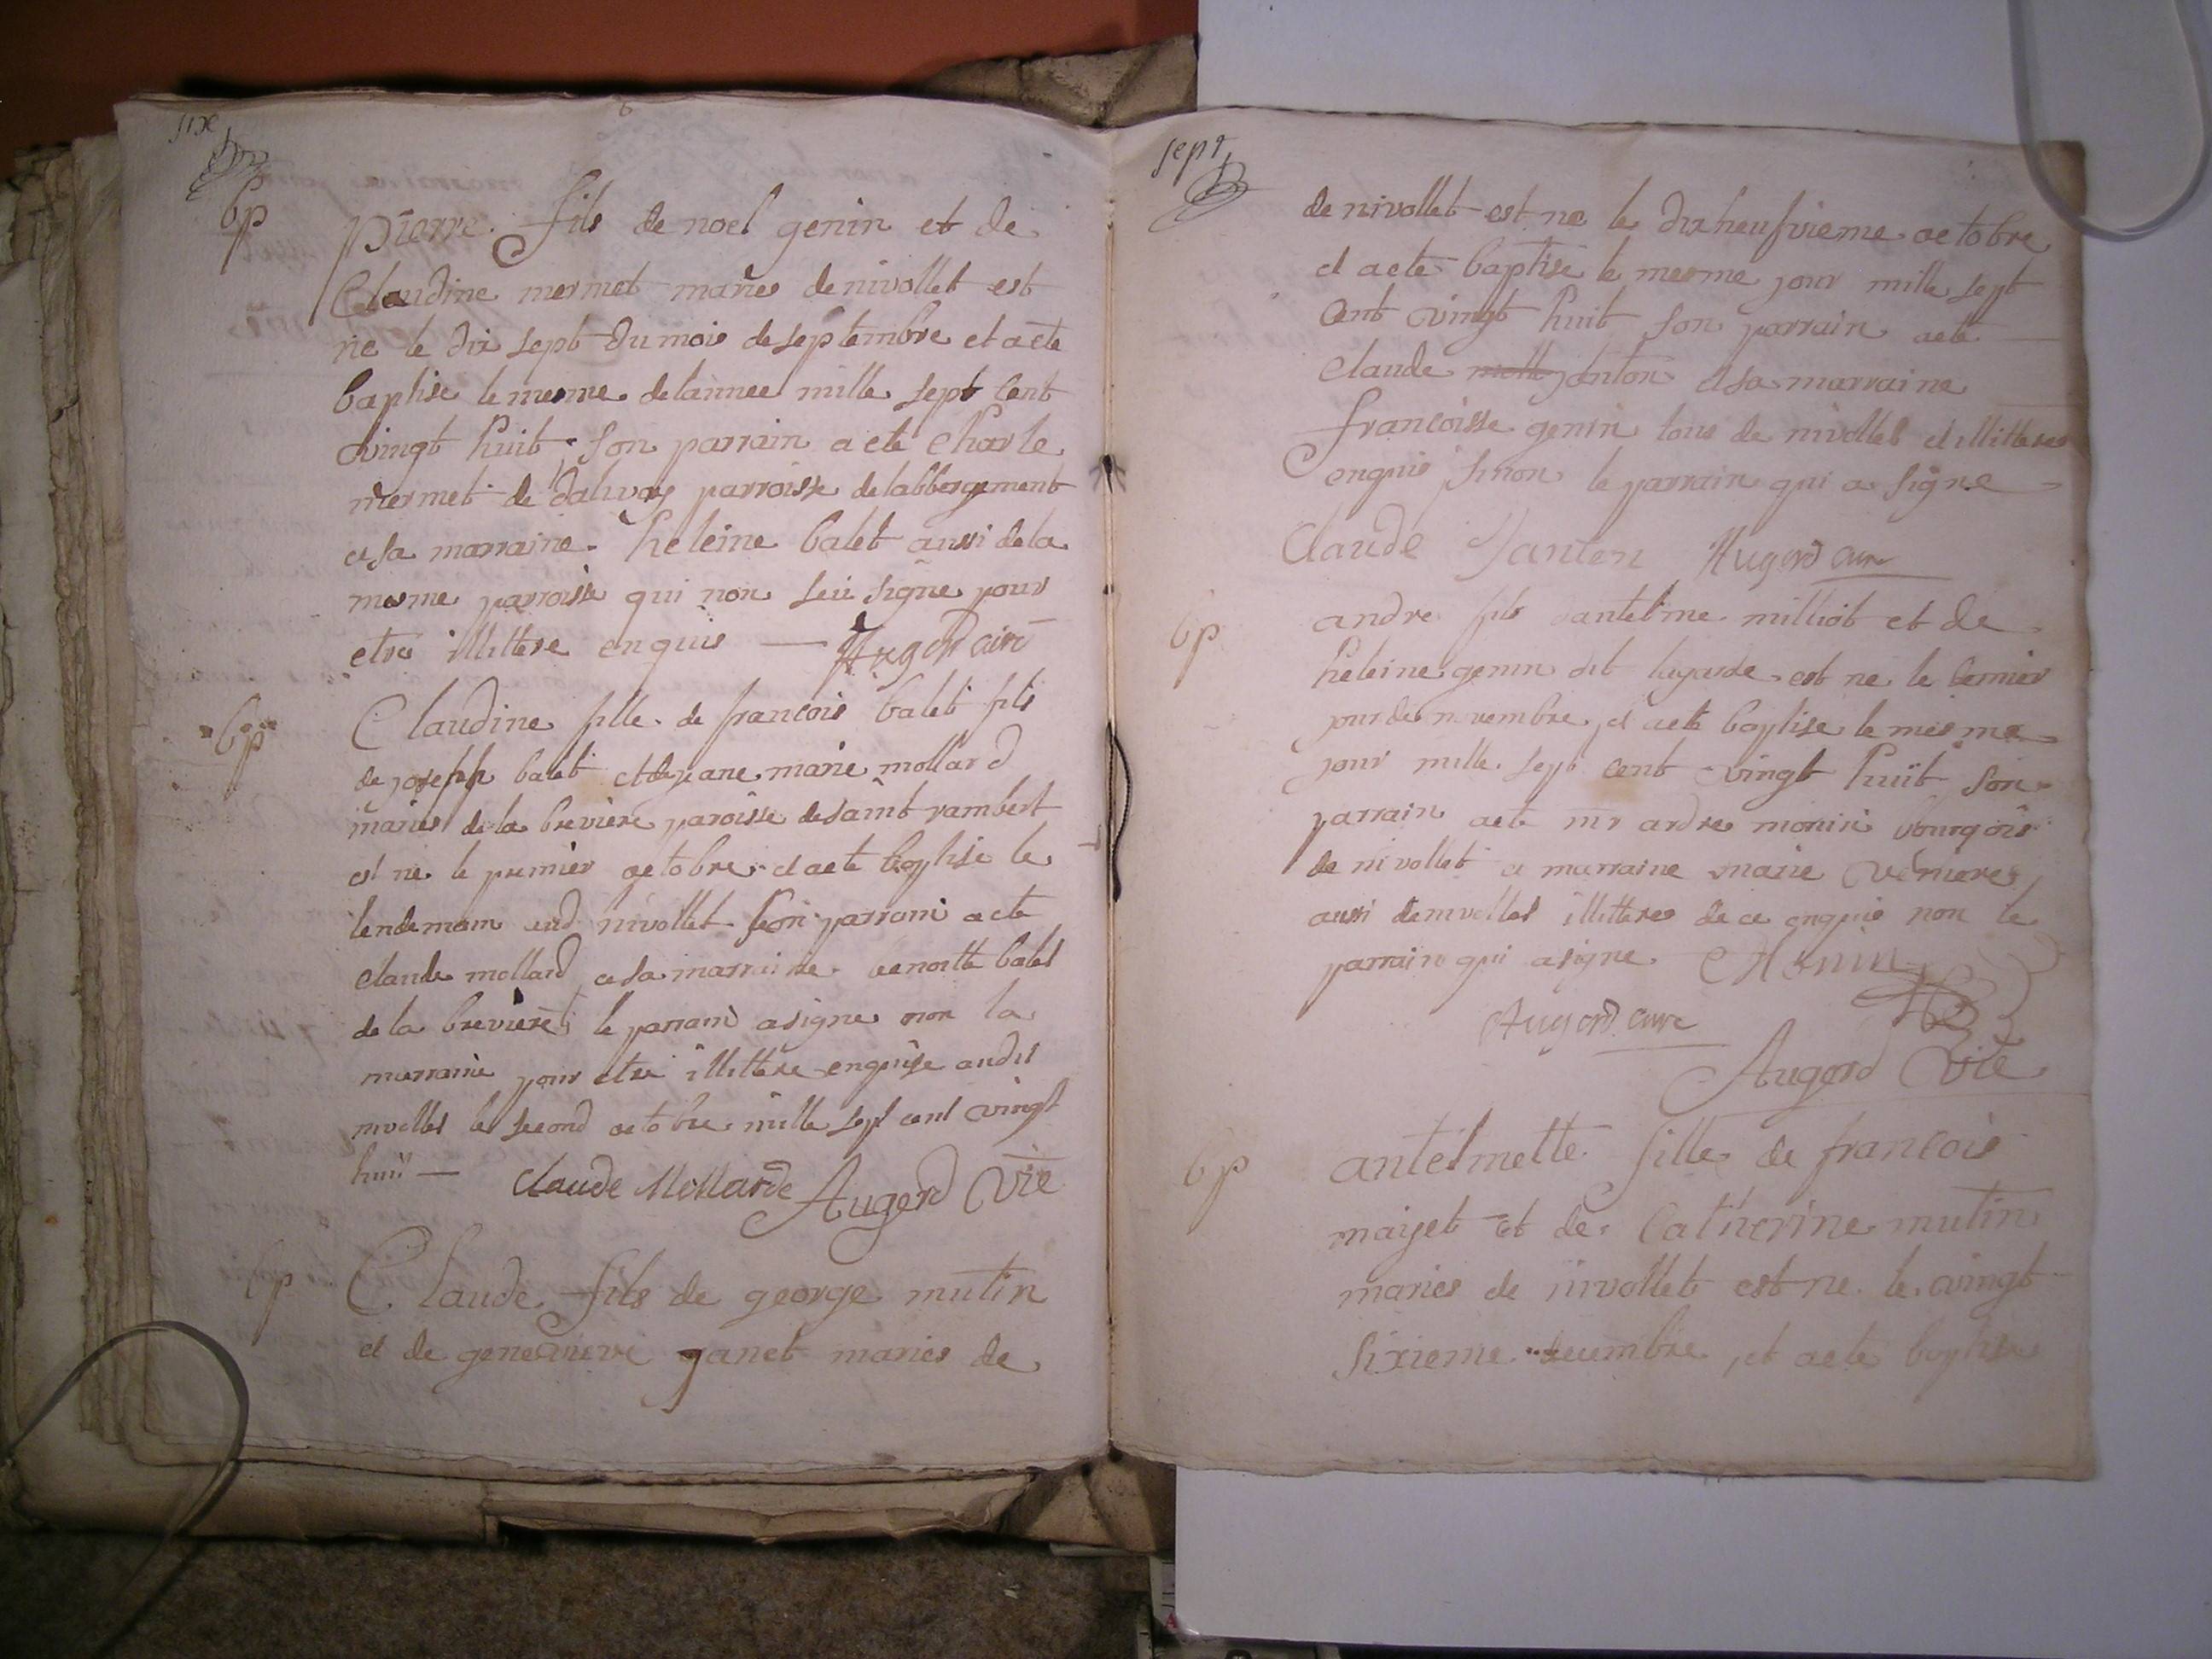 sixe
bp
pierre fils de noel genin et de
Claudine mermet maries de nivollet est
ne le dix sept du mois de septembre et aete
baptise le mesme de lannee mille sept cent
vingt huit son parrain a ete charle
mermet de parroisse de labbergement
et sa marraine heleine balet aussi de la
mesme parroisse qui non seu signe pour
etre illittere enquis — Augerd curé
bp
Claudine fille de francois balet fils
de joseph balet et de jeane marie mollard
maries de la breviere paroisse de saint rambert
est ne le premier octobre et aete baptise le
lendemain aud nivollet son parrain aete
claude mollard et sa marraine benoitte balet
de la breviere le parrain a signe non la
marraine pour etre illittere enquise audit
nivollet le second octobre mille sept cent vingt
huit — Claude Mollarde Augerd Vic
bp
Claude fils de george mutin
et de genevieve janet maries de
sept
de nivollet est ne le dix neufvieme octobre
et aete baptise le mesme jour mille sept
cent vingt huit son parrain aete
claude janton et sa marraine
francoisse genin tous de nivollet et illitteres
enquis sinon le parrain qui a signe
Claude Janton Augerd cure
bp
andre fils dantelme milliot et de
heleine genin dit lagarde est ne le
jour de novembre et aete baptise le mesme
jour mille sept cent vingt huit son
parrain aete mr andre monin bourgois
de nivollet a marraine marie
aussi de nivollet illitteres de ce enquis non le
parrain qui a signe Monin
Augerd cure
Augerd Vic
bp
antelmette fille de francois
mayet et de Catherine mutin
maries de nivollet est ne le vingt
sixieme decembre, et aete baptise